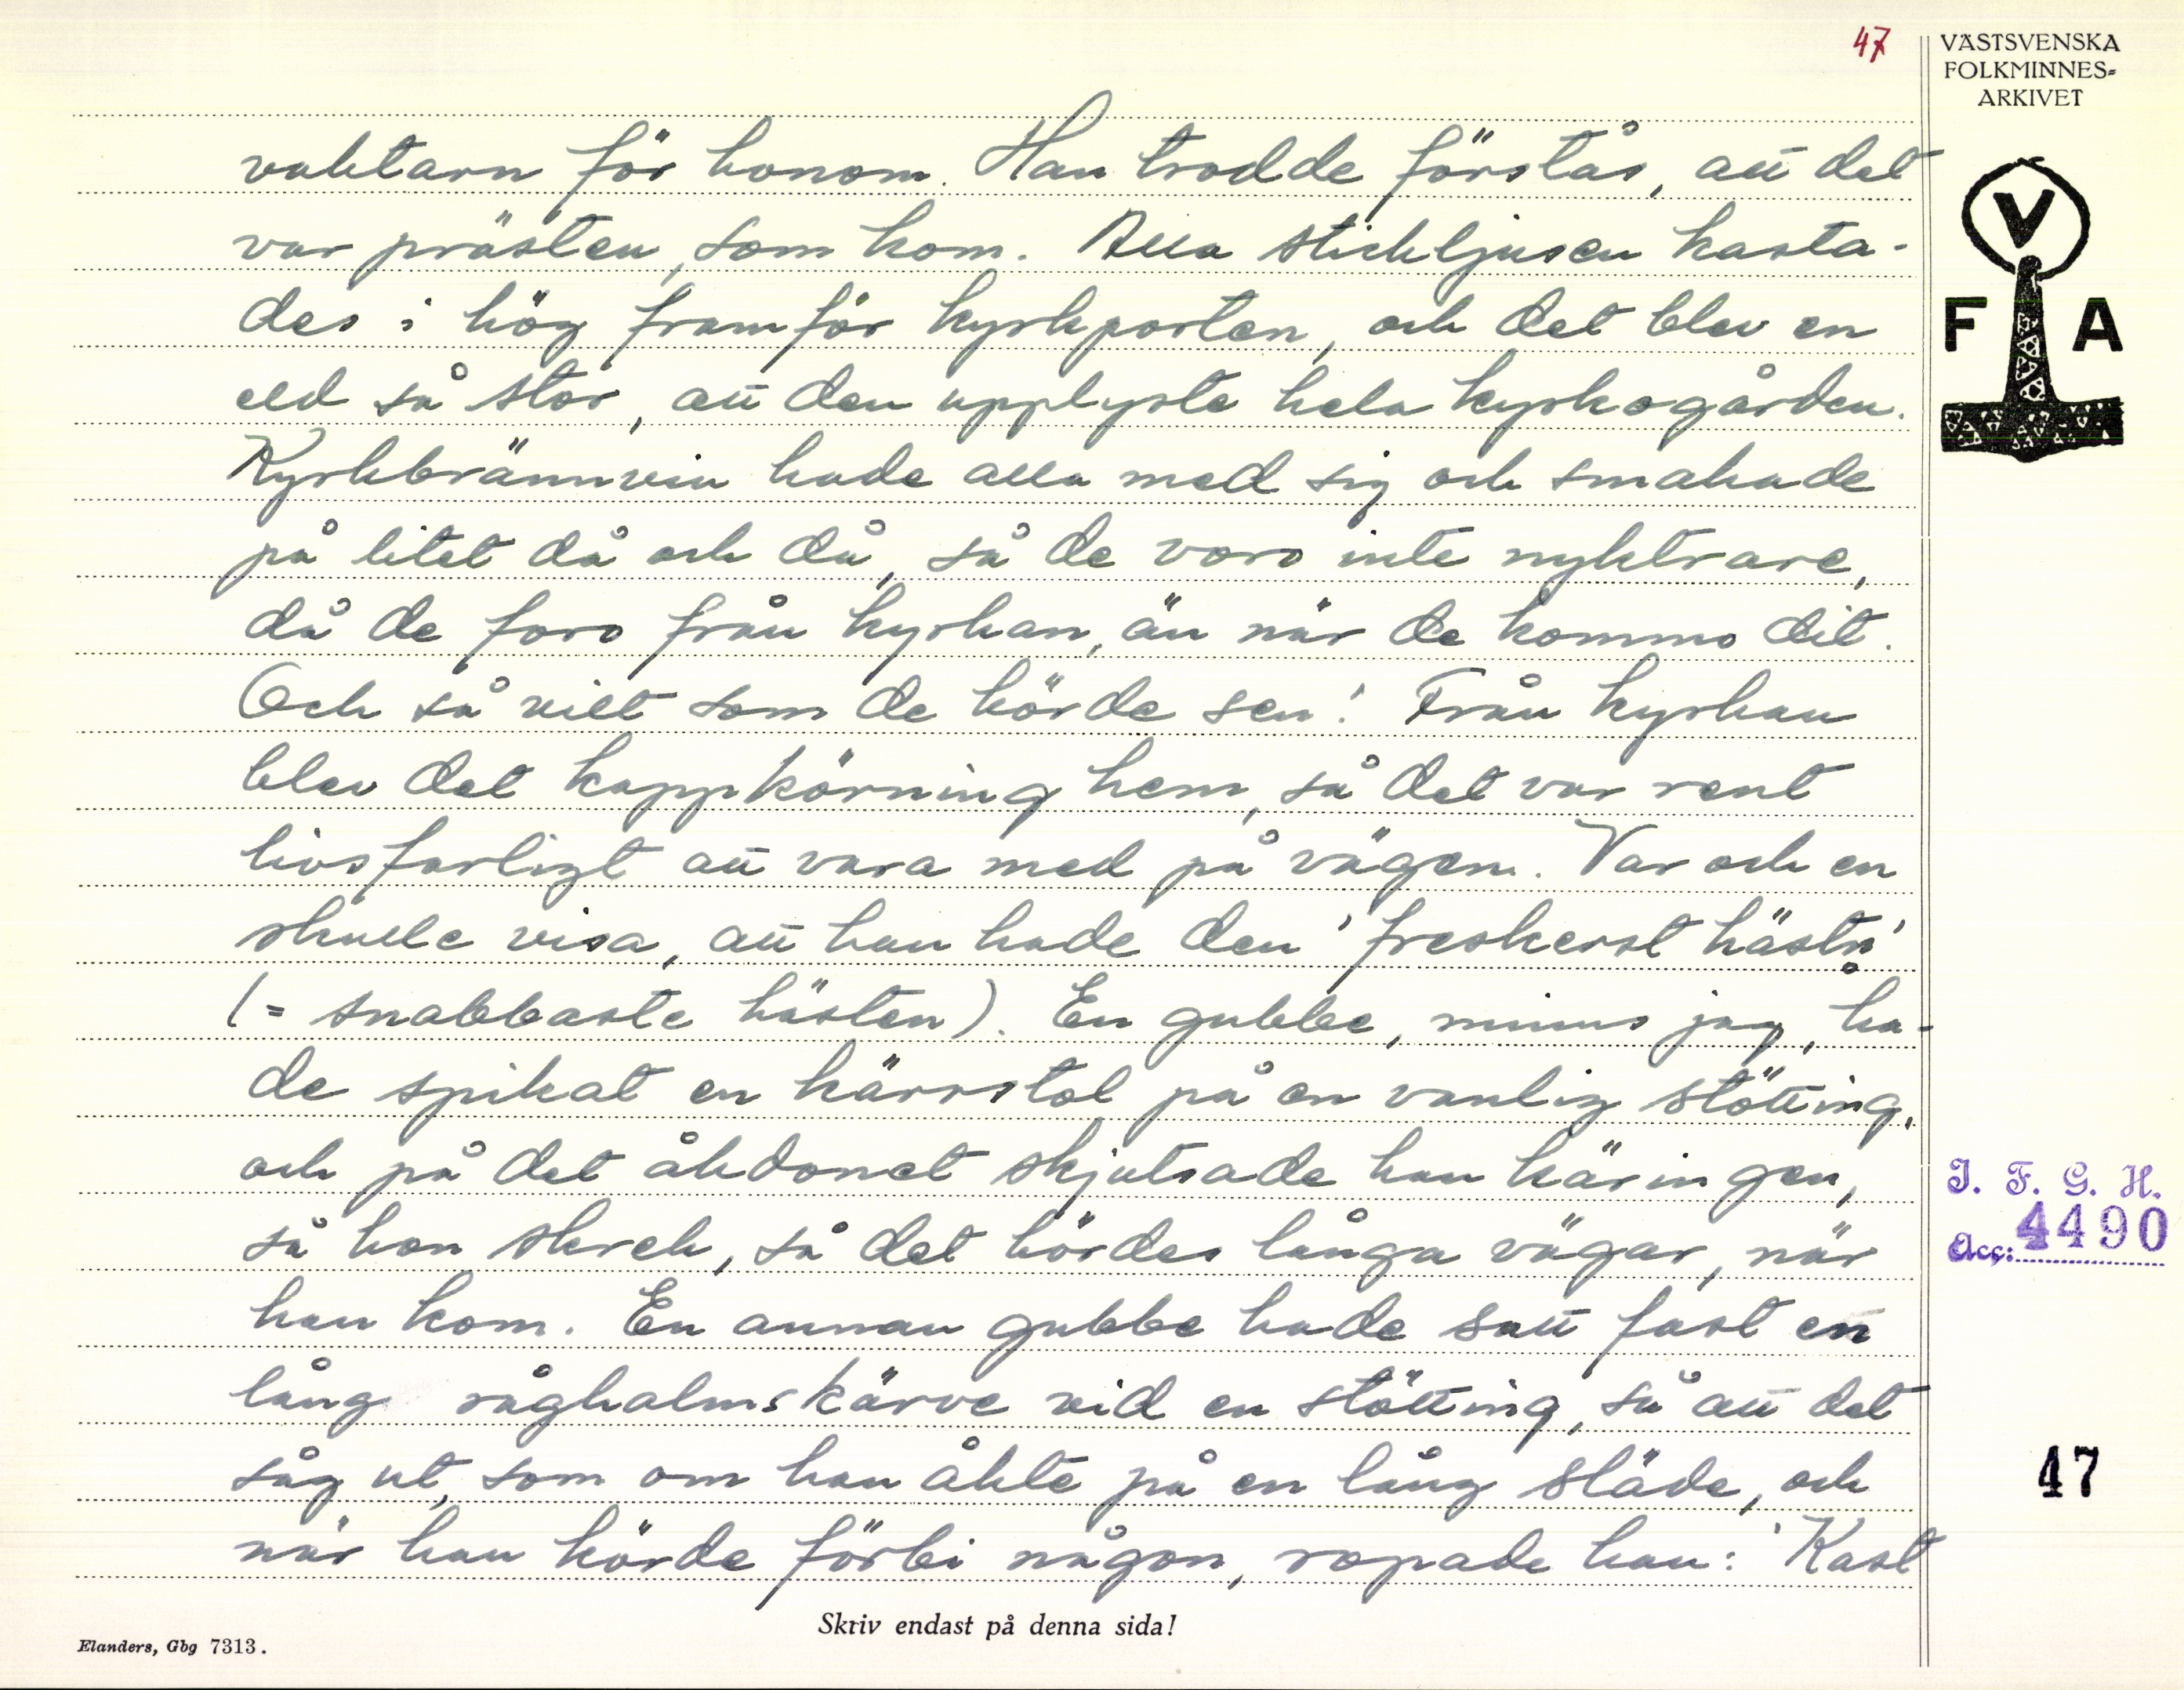 47
VÄSTSVENSKA
FOLKMINNES-
ARKIVET
V
F A
vaktarn för honom. Han trodde förstås, att det
var prästen, som kom. Alla stickljusen kasta-
des i hög framför kyrkporten, och det blev en
eld så stor, att den upplyste hela kyrkogården.
Kyrkbrännvin hade alla med sig och smakade
på litet då och då, så de voro inte nyktrare,
då de foro från kyrkan, än när de kommo dit.
Och så vilt som de körde sen! Från kyrkan
blev det kappkörning hem, så det var rent
livsfarligt att vara med på vägen. Var och en
skulle visa, att han hade den 'freskerst hästn'
(= snabbaste hästen). En gubbe, minns jag, ha-
de spikat en kärrstol på en vanlig stötting,
och på det åkdonet skjutsade han käringen,
så hon skrek, så det hördes långa vägar, när
han kom. En annan gubbe hade satt fast en
lång råghalmskärve vid en stötting, så att det
såg ut, som om han åkte på en lång släde, och
när han körde förbi någon, ropade han: 'Kast
I. F. G. H.
Acc: 4490
47
Skriv endast på denna sida!
Elanders, Gbg 7313.